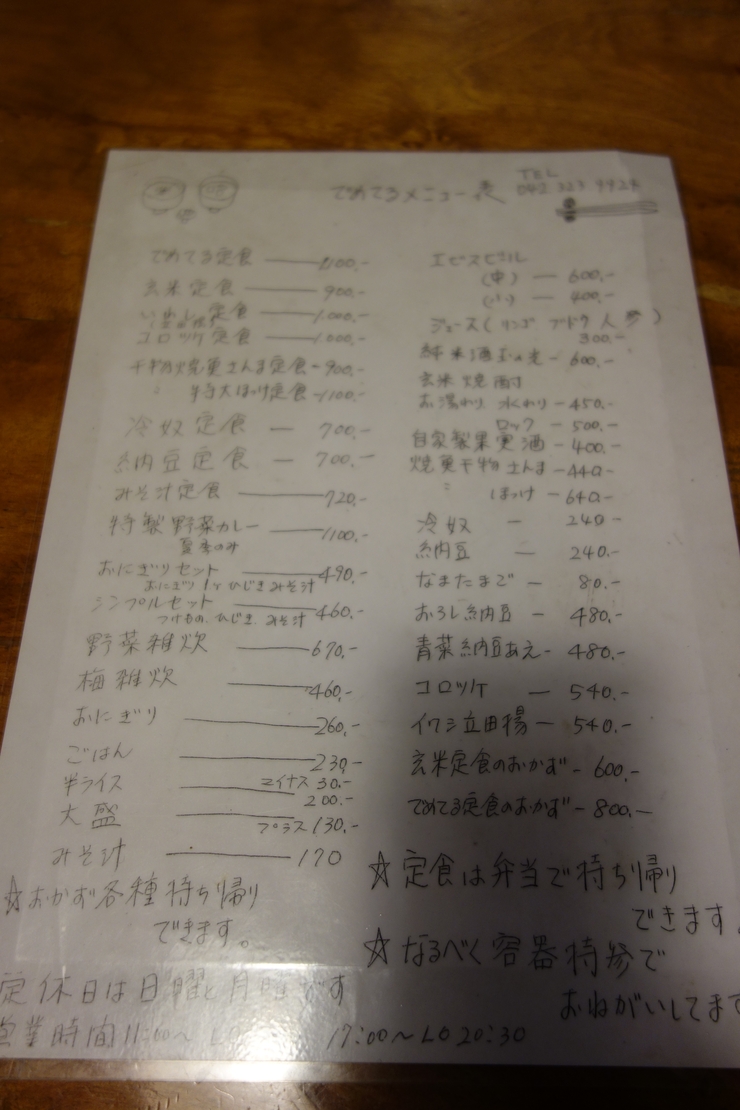 でめてるメニュー表
TEL
042 323 9924
でめてる定食 ―― 1100.-
玄米定食 ―― 900.-
いわし定食 ―― 1,000.-
コロッケ定食 ―― 1,000.-
干物焼魚さんま定食 - 900.-
〃 特大ほっけ定食 - 1100.-
冷奴定食 ― 700.-
納豆定食 ― 700.-
みそ汁定食 ―― 720.-
特製野菜カレー ―― 1100.-
夏季のみ
おにぎりセット ―― 490.-
おにぎり1ヶ ひじき みそ汁
シンプルセット ―― 460.-
つけもの、ひじき、みそ汁
野菜雑炊 ―― 670.-
梅雑炊 ―― 460.-
おにぎり ―― 260.-
ごはん ―― 230.-
半ライス マイナス 30.-
―― 200.-
大盛 ―― プラス 130.-
みそ汁 ―― 170
☆おかず各種持ち帰り
できます。
定休日は日曜と月曜です
営業時間 11:00〜 LO
17:00〜 LO 20:30
エビスビール
(中) ― 600.-
(小) ― 400.-
ジュース(リンゴ ブドウ 人参)
300.-
純米酒 ― 600.-
玄米焼酎
お湯わり 水わり - 450.-
ロック - 500.-
自家製果実酒 - 400.-
焼魚干物 さんま - 440.-
〃 ほっけ - 640.-
冷奴 ― 240.-
納豆 ― 240.-
なまたまご ― 80.-
おろし納豆 ― 480.-
青菜納豆あえ - 480.-
コロッケ ― 540.-
イワシ立田揚 ― 540.-
玄米定食のおかず - 600.-
でめてる定食のおかず - 800.-
☆定食は弁当で持ち帰り
できます。
☆なるべく容器持参で
おねがいしてます